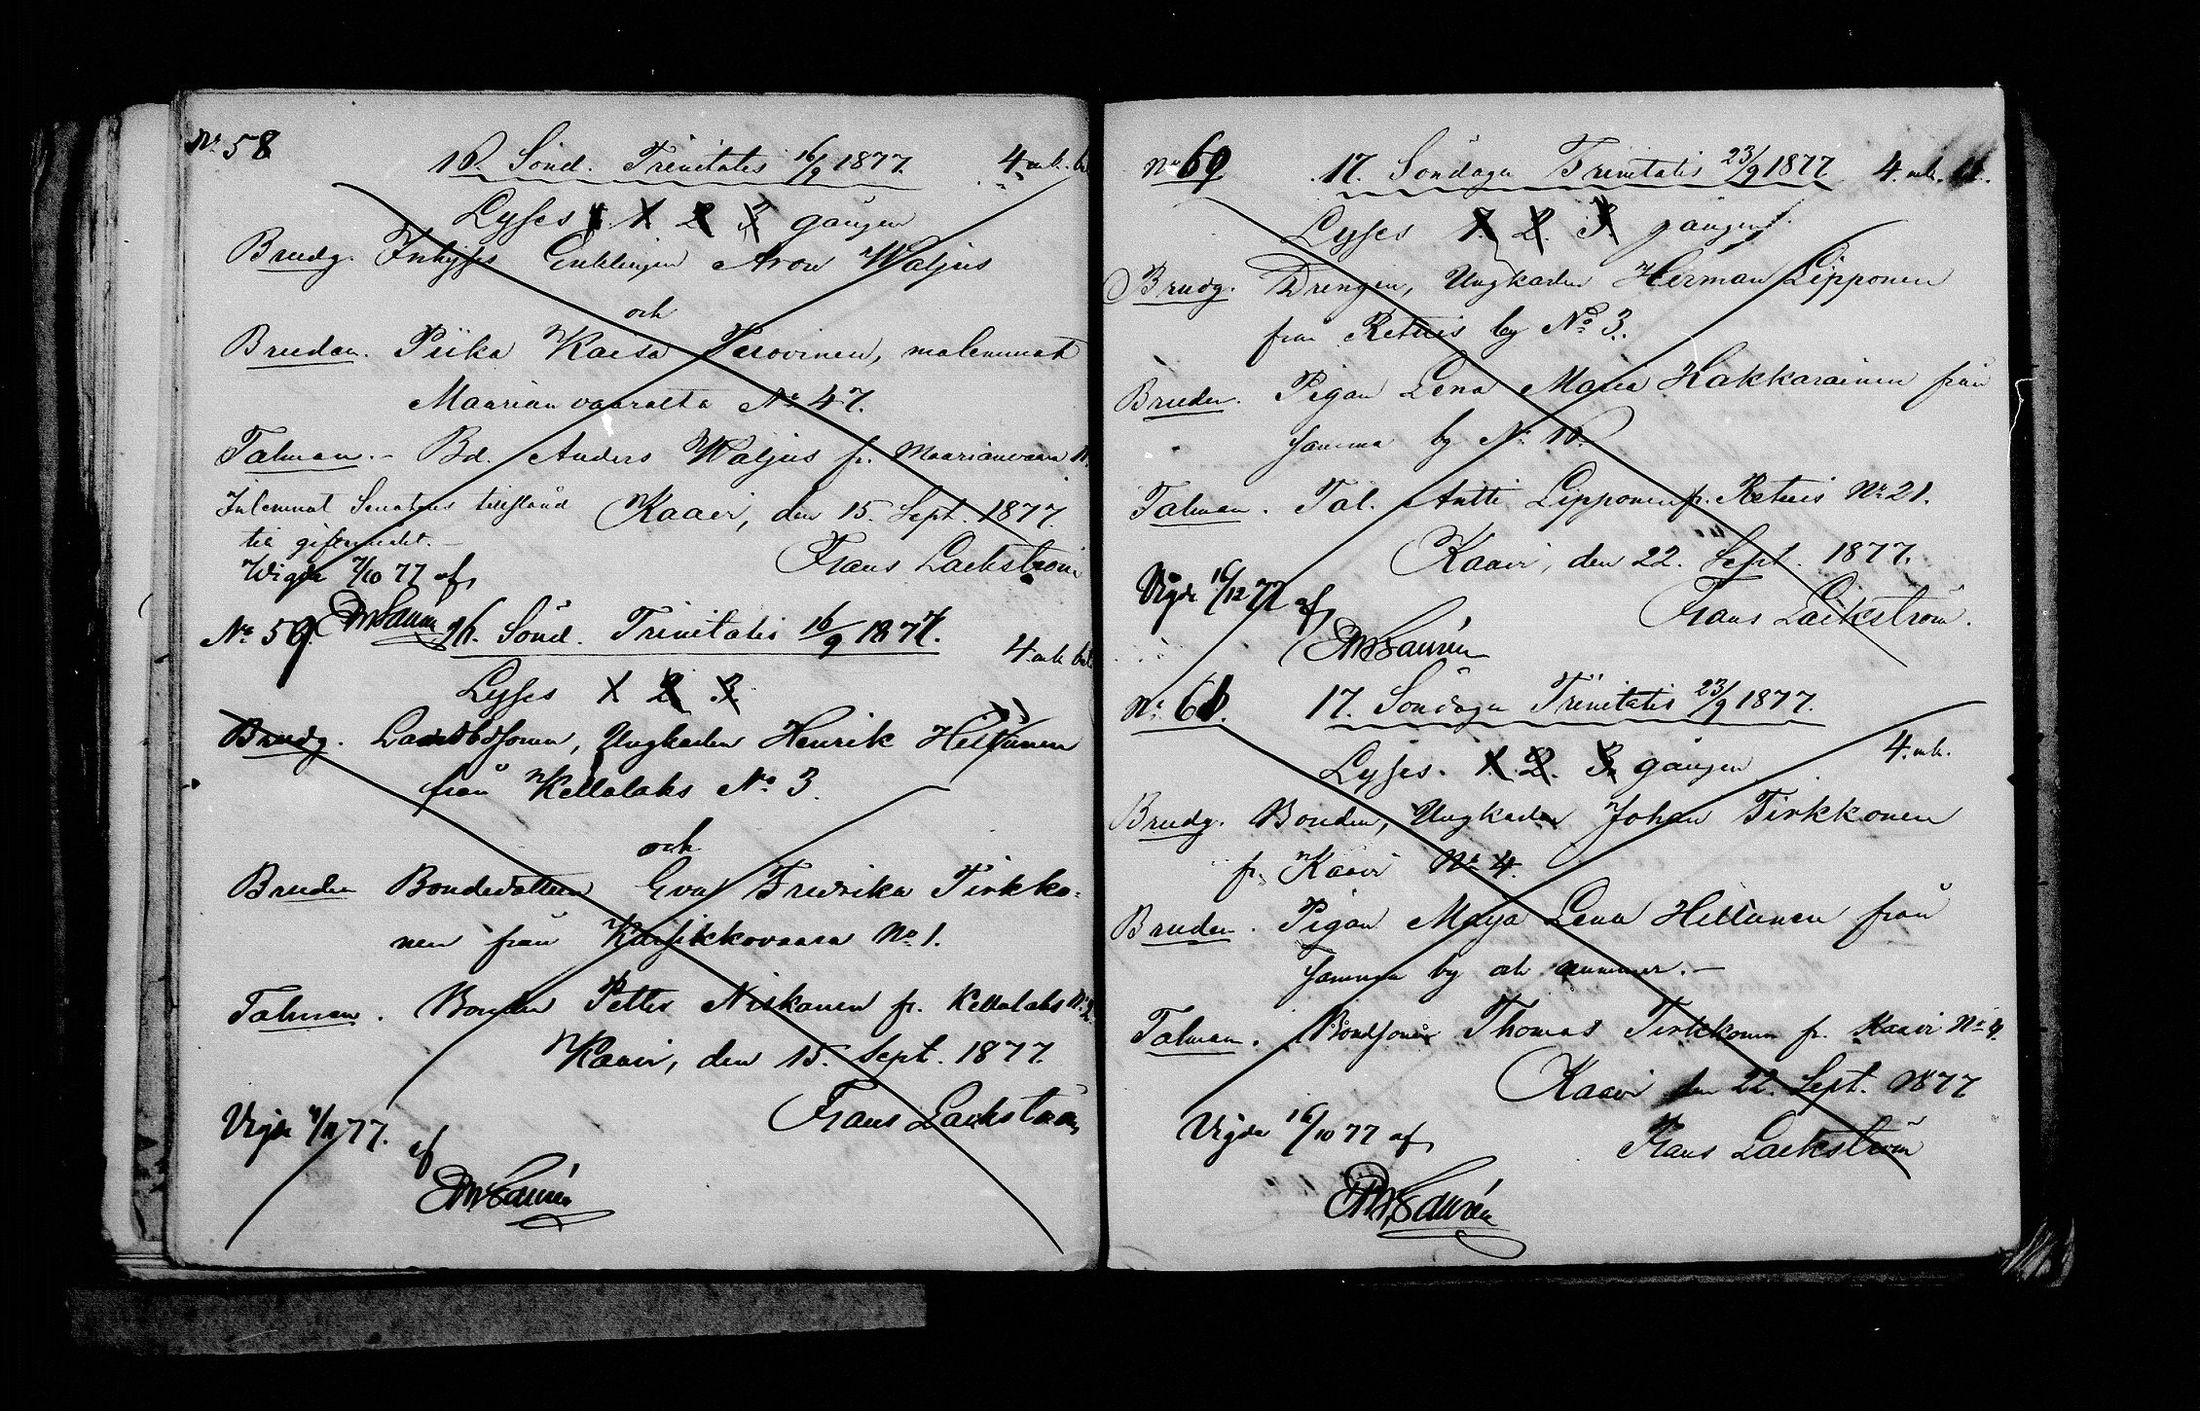 No 58
16. Sönd. Trinitatis 16/9 1877. 4 mk. b
Lyses 1 2 3 gången
Brudg. Inhyses Enklingen Aron Waljus
och
Bruden. Piika Kaisa Terovinen, molemmat
Maarianvaaralta No 47.
Talman. - Bd. Anders Waljus fr. Maarianvaara N.
Inlemnat Senatens tillstånd
till giftermålet. -
Kaavi, den 15. Sept. 1877.
Frans Lackström
Wigde 7/10 77 af
EMSaurén
No 59. 16. Sönd. Trinitatis 16/9 1877.
4 mk
Lyses 1 2 3
Brudg. Landbdsonen, Ungkarlen Henrik Hiltunen
från Kellolaks No 3.
och
Bruden Bondedottern Eva Fredrika Tirkko-
nen från Karsikkovaara No 1.
Talman. Bonden Petter Niskanen fr. Kellolaks No 2
Kaavi, den 15. Sept. 1877.
Frans Lackström
Vigde 4/11 77. af
EMSaurén
No 60 17. Söndagen Trinitatis 23/9 1877 4. mk.
Lyses 1. 2. 3. gången.
Brudg. Drengen, Ungkarlen Herman Lipponen
från Retuis by No 3.
Bruden. Pigan Lena Maria Hakkarainen från
samma by No 10.
Talman. Tal. Antti Lipponen fr. Retuis No 21.
Kaavi, den 22. Sept. 1877.
Frans Lackström.
Vigde 16/12 77 af
EMSaurén
No 61. 17. Söndagen Trinitatis 23/9 1877.
4. mk.
Lyses. 1. 2. 3. gången
Brudg. Bonden, Ungkarlen Johan Tirkkonen
fr. Kaavi No 4.
Bruden. Pigan Maja Lena Hiltunen från
samma by och nummer. -
Talman. Bondsonen Thomas Tirkkonen fr. Kaavi No 4.
Kaavi den 22. Sept. 1877
Frans Lackström
Vigde 16/10 77 af
EMSaurén